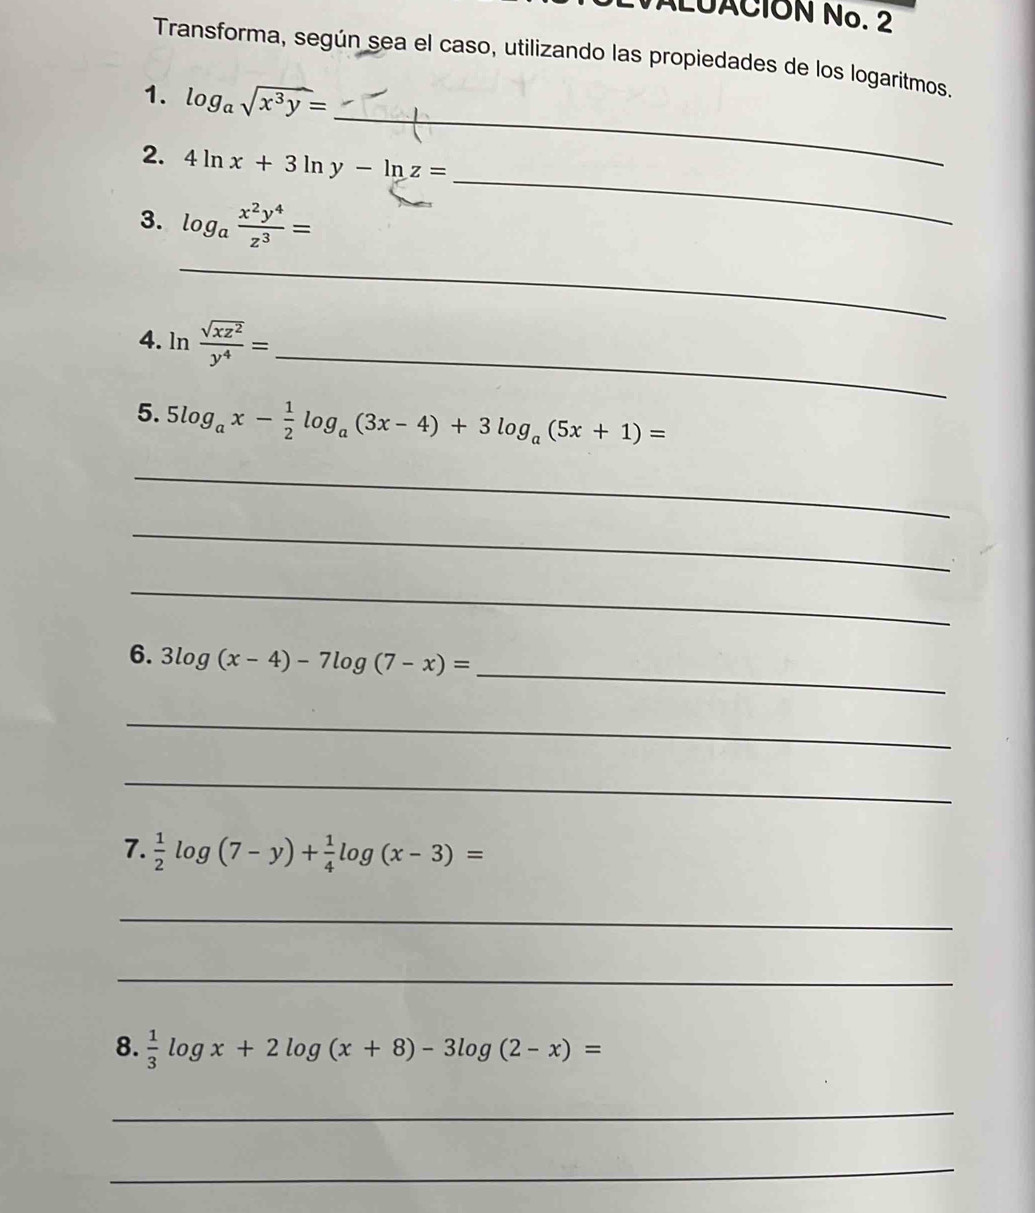 EVALUACIÓN No. 2
Transforma, según sea el caso, utilizando las propiedades de los logaritmos.
1. logₐ √(x³y) =
2. 4 ln x + 3 ln y − ln z =
3. logₐ x²y⁴/z³ =
4. ln √(xz²)/y⁴ =
5. 5logₐ x − 1/2 logₐ (3x − 4) + 3 logₐ (5x + 1) =
6. 3log (x − 4) − 7log (7 − x) =
7. 1/2 log (7 − y) + 1/4 log (x − 3) =
8. 1/3 log x + 2 log (x + 8) − 3log (2 − x) =